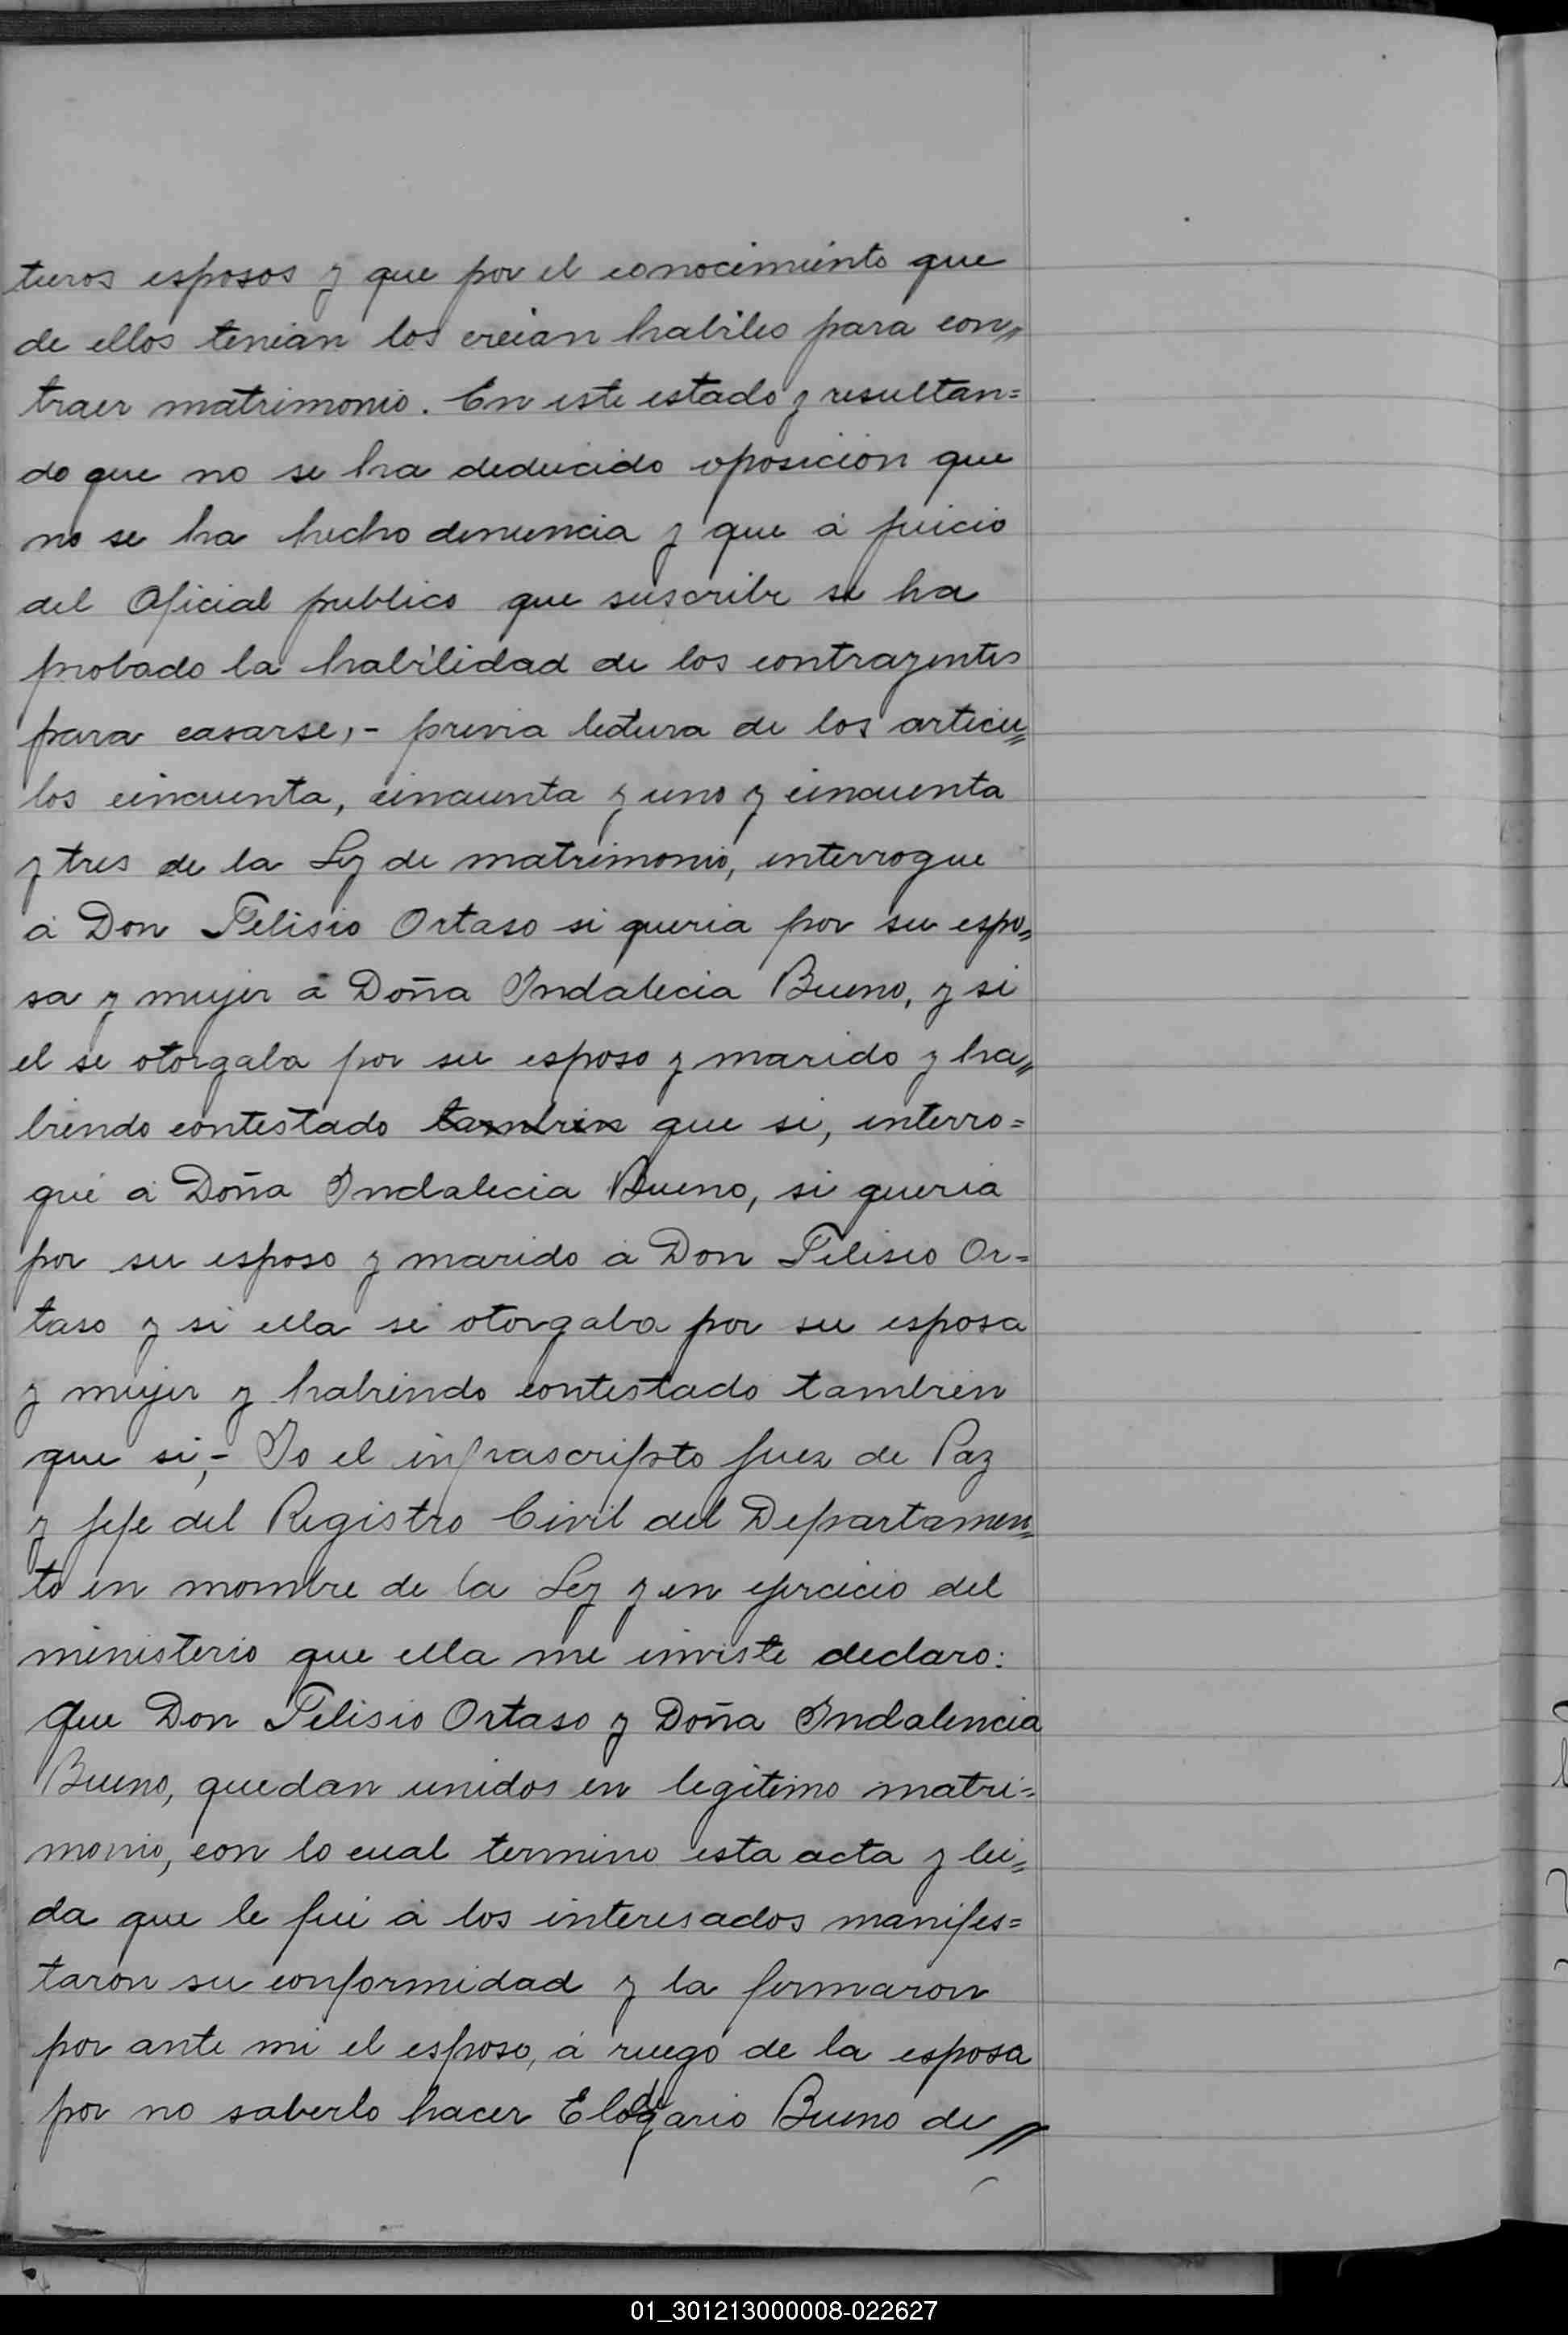 turos esposos y que por el conocimiento que
de ellos tenian los creian habiles para con„
traer matrimonio. En este estado y resultan=
do que no se ha deducido oposición que
no se ha hecho denuncia y que á juicio
del Oficial publico que suscribe se ha
probado la habilidad de los contrayentes
para casarse,- previa lectura de los articu„
los cincuenta, cincuenta y uno y cincuenta
y tres de la Ley de matrimonio, interrogue
á Don Felisio Ortaso si queria por su espo„
sa y mujer á Doña Indalecia Bueno, y si
el se otorgaba por su esposo y marido y ha„
biendo contestado tambien que si, interro=
gué á Doña Indalecia Bueno, si queria
por su esposo y marido á Don Felisio Or=
taso y si ella se otorgaba por su esposa
y mujer y habiendo contestado tambien
que si,- Yo el infrascripto Juez de Paz
y Jefe del Registro Civil del Departamen„
to en mombre de la Ley y en ejercicio del
ministerio que ella me inviste declaro:
Que Don Felisio Ortaso y Doña Indalencia
Bueno, quedan unidos en legitimo matri=
monio, con lo cual termino esta acta y lei„
da que le fué á los interesados manifes=
taron su conformidad y la firmaron
por ante mi el esposo, á ruego de la esposa
por no saberlo hacer Bueno de //
01_301213000008-022627